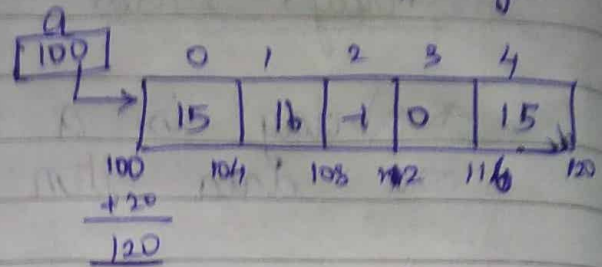 a
100
0 1 2 3 4
15 16 -1 0 15
100 104 108 112 116 120
+20
120